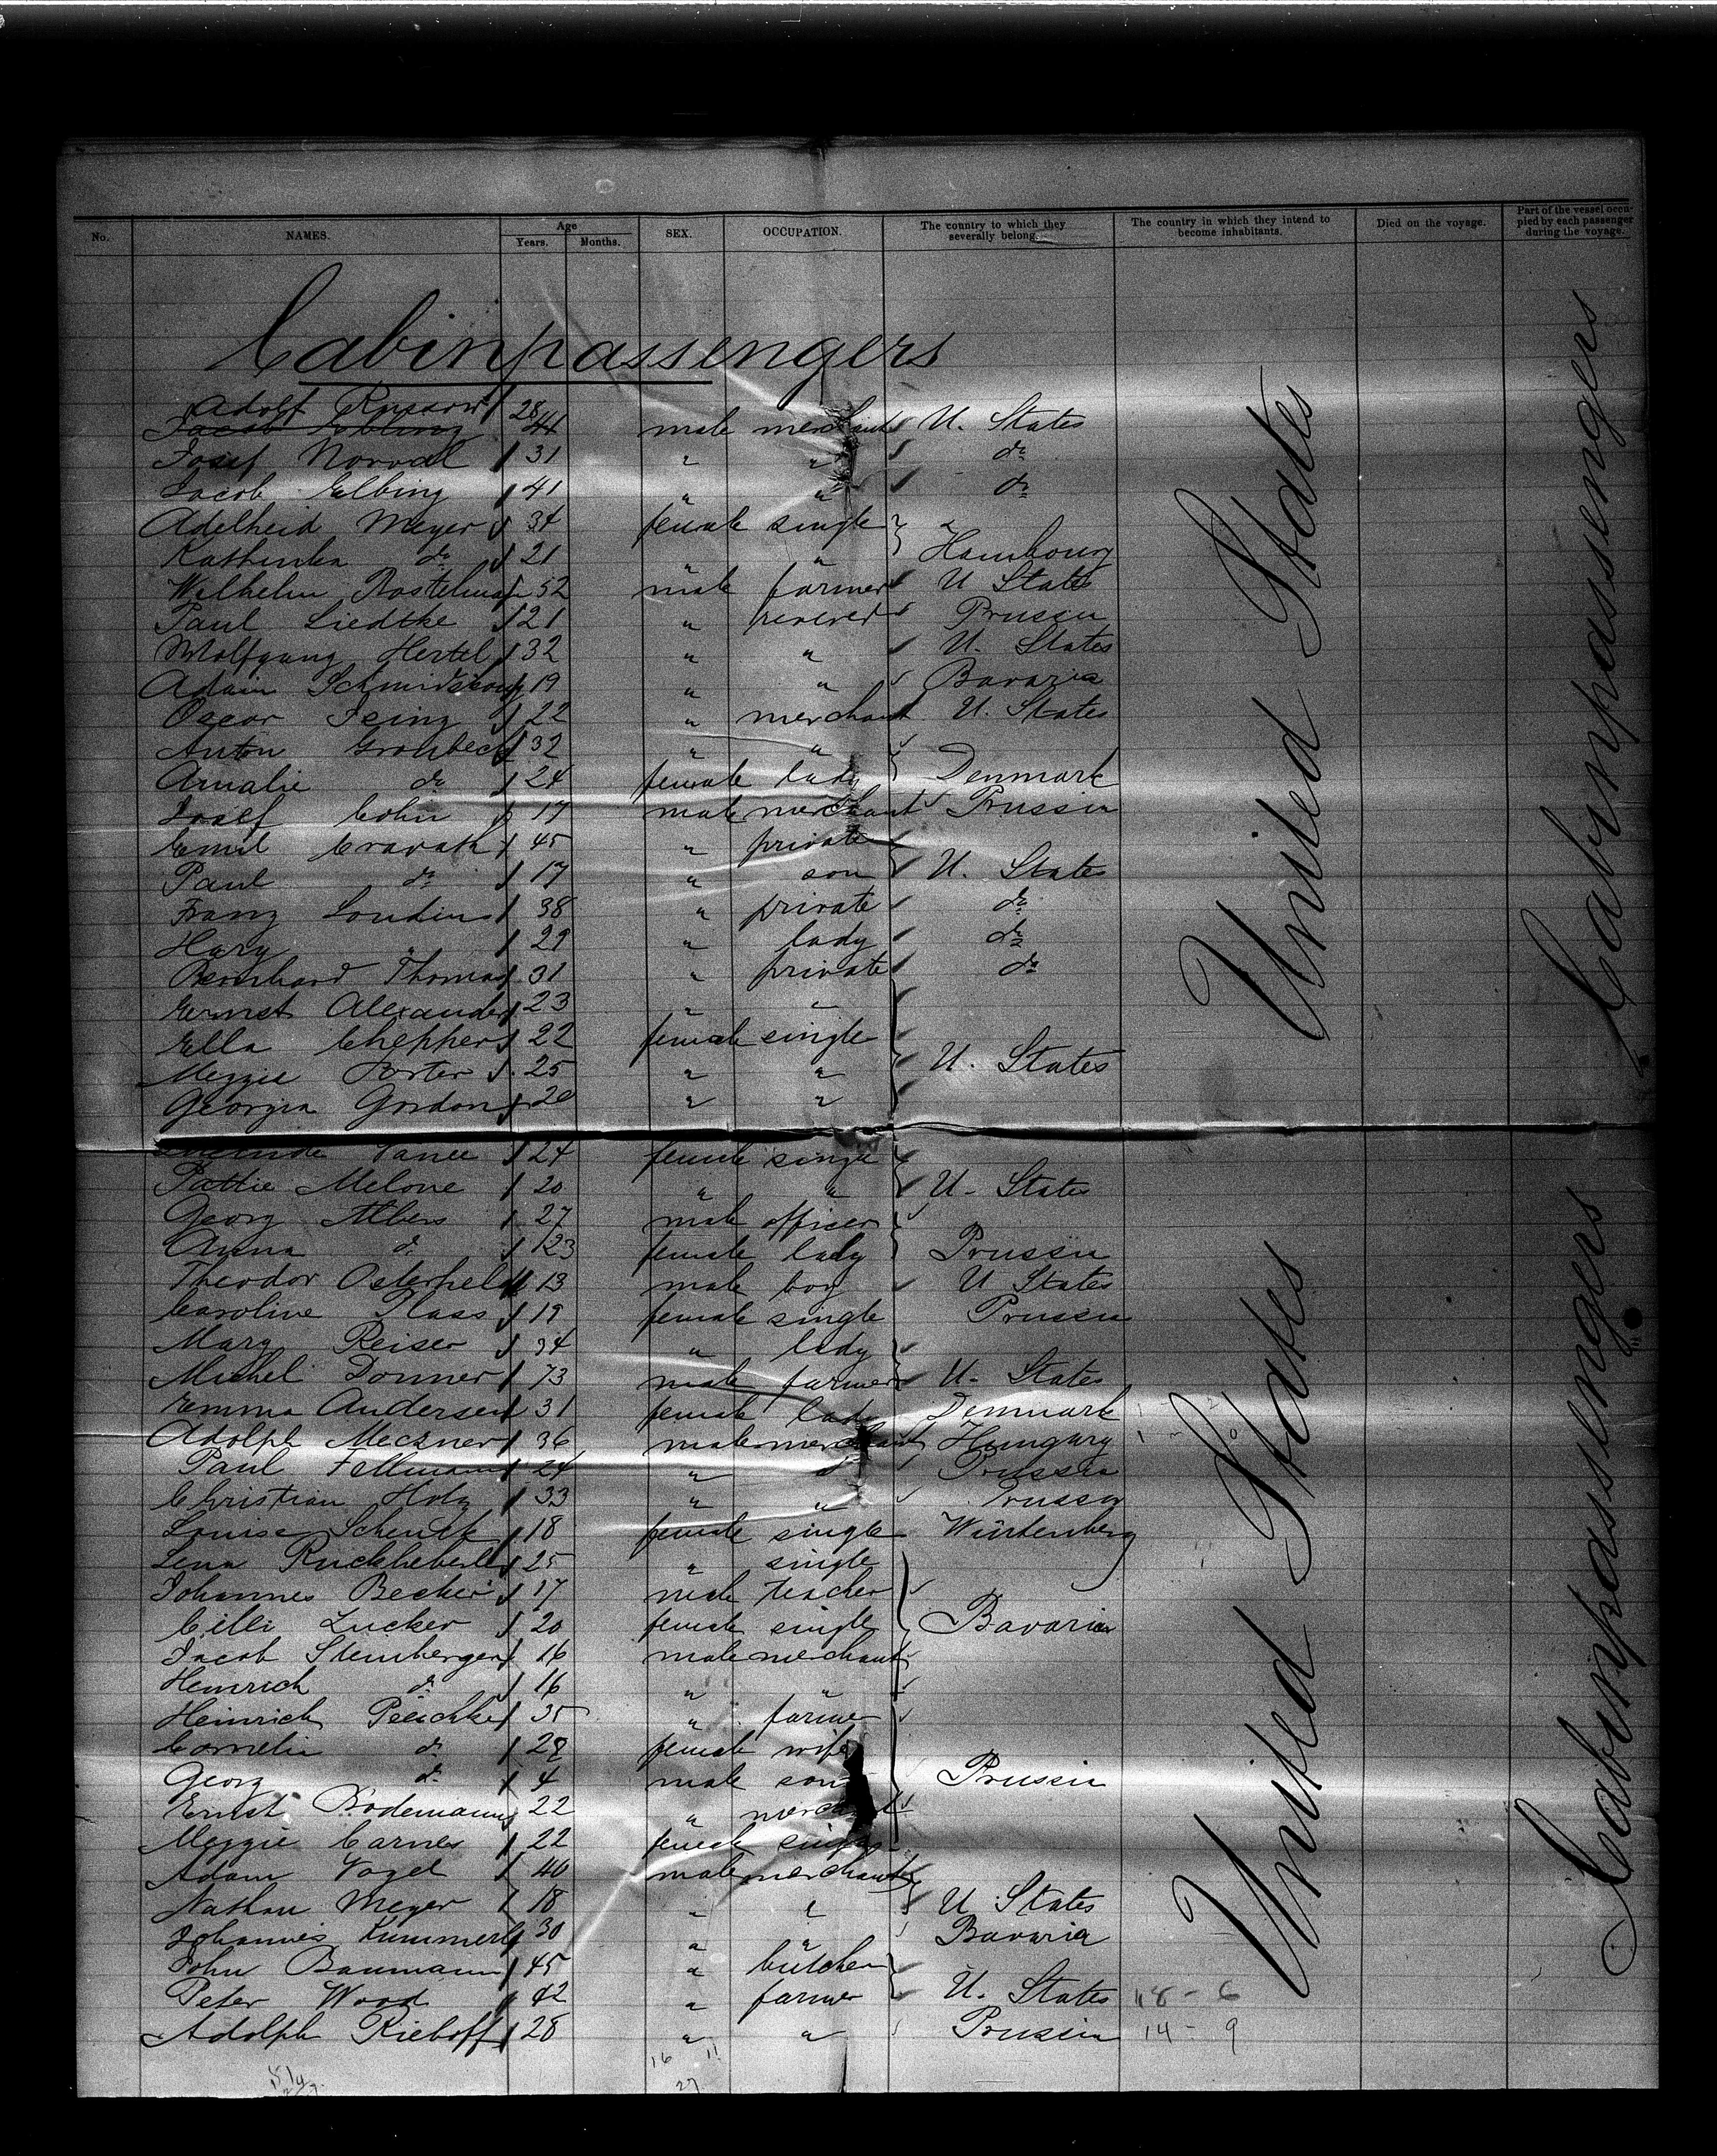 No. NAMES. Age Years. Months. SEX. OCCUPATION. The country to which they severally belong. The country in which they intend to become inhabitants. Died on the voyage. Part of the vessel occupied by each passenger during the voyage.
Cabinpassengers
Adolf 28
44 male merchant U. States
Josef Norval 31 " " do
Jacob Elbing 41 " " do
Adelheid Meyer 34 female single "
Kathinka do 21 " " Hambourg
Wilhelm Rostelman 52 male farmer U States
Paul Liedtke 21 " Prussia
Wolfgang Hertel 32 " " U. States
Adam 19 " " Bavaria
Oscar Ising 22 " merchant U. States
Anton Gronbeck 32 " "
Amalie do 24 female lady Denmark
Josef Cohn 17 male merchant Prussia
Emil Cravath 45 " private
Paul do 17 " son U. States
Franz Loudin 38 " private do
Hary " 29 " lady do
Bernhard Thomas 31 " private do
Ernst Alexander 23 " "
Ella Cheppers 22 female single
Meggie Porter 25 " " U. States
Georgia Gordon 20 " "
24 female single
Pattie Melone 20 " " U. States
Georg Albers 27 male officer
Anna do 23 female lady Prussia
Theodor Osterheld 13 male boy U States
Caroline Plass 19 female single Prussia
Mary Reiser 34 " lady
Michel Donner 73 male farmer U. States
Emma Andersen 31 female lady Denmark
Adolph Meczner 36 male merchant Hungary
Paul Fellmann 24 " d Prussia
Christian Holz 33 " " Prussia
Louise Schenck 18 female single Würtenberg
Lena 25 " single
Johannes Becker 17 male teacher
Cilli Zucker 20 female single Bavaria
Jacob Steinberger 16 male merchant
Heinrich do 16 " "
Heinrich Peeschke 35 " farmer
Cornelia do 28 female wife
Georg do 4 male son Prussia
Ernst Bodemann 22 " merchant
Meggie Carnes 22 female single
Adam Vogel 40 male merchant
Nathan Meyer 18 " " U. States
Johannes Kummerly 30 " " Bavaria
John Baumann 45 " butcher
Peter Wood 42 " farmer U. States 18 - 6
Adolph Riehoff 28 " " Prussia 14 - 9
16 11
27
United States
United States
Cabinpassengers
Cabinpassengers